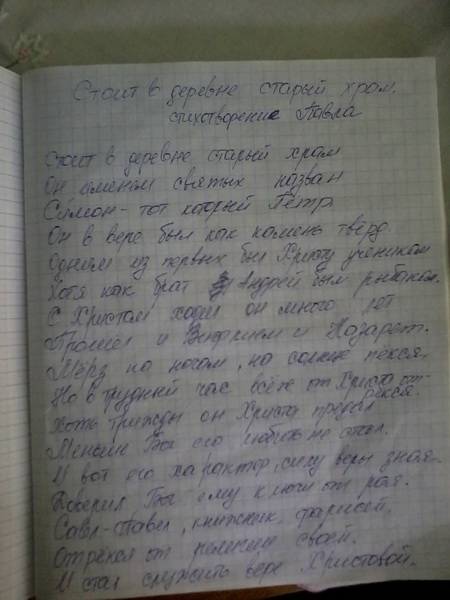 Стоит в деревне старый храм.
стихотворение Павла
Стоит в деревне старый храм
Он именем святых назван
Симон - тот который Пётр
Он в вере был как камень твёрд.
Одним из первых был Христу учеником
Хотя как брат Андрей был рыбаком.
С Христом ходил он много лет
Прошёл и Вифлием и Назарет.
Мёрз по ночам, на солнце пёкся.
Но в трудный час всё же от Христа отрёкся.
Хоть трижды он Христа предал
Меньше Бог его любить не стал.
И вот его характер, силу веры зная.
Доверил Бог ему ключи от рая.
Савл-Павел, книжник, фарисей.
Отрёкся от религии своей.
И стал служить вере Христовой.